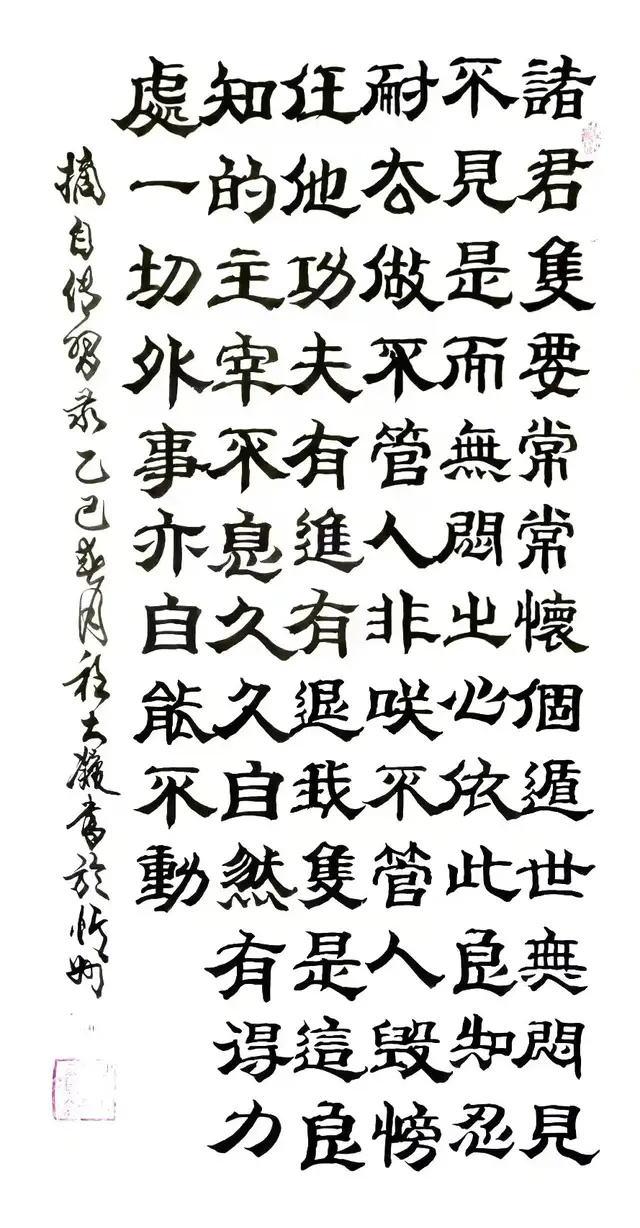 諸君隻要常常懷個遁世無悶見
不見是而無悶之心依此良知忍
耐去做不管人非咲不管人毀謗
任他功夫有進有退我隻是這良
知的主宰不息久久自然有得力
處一切外事亦自能不動
摘自傳習录乙巳春月程大癡書於忻州